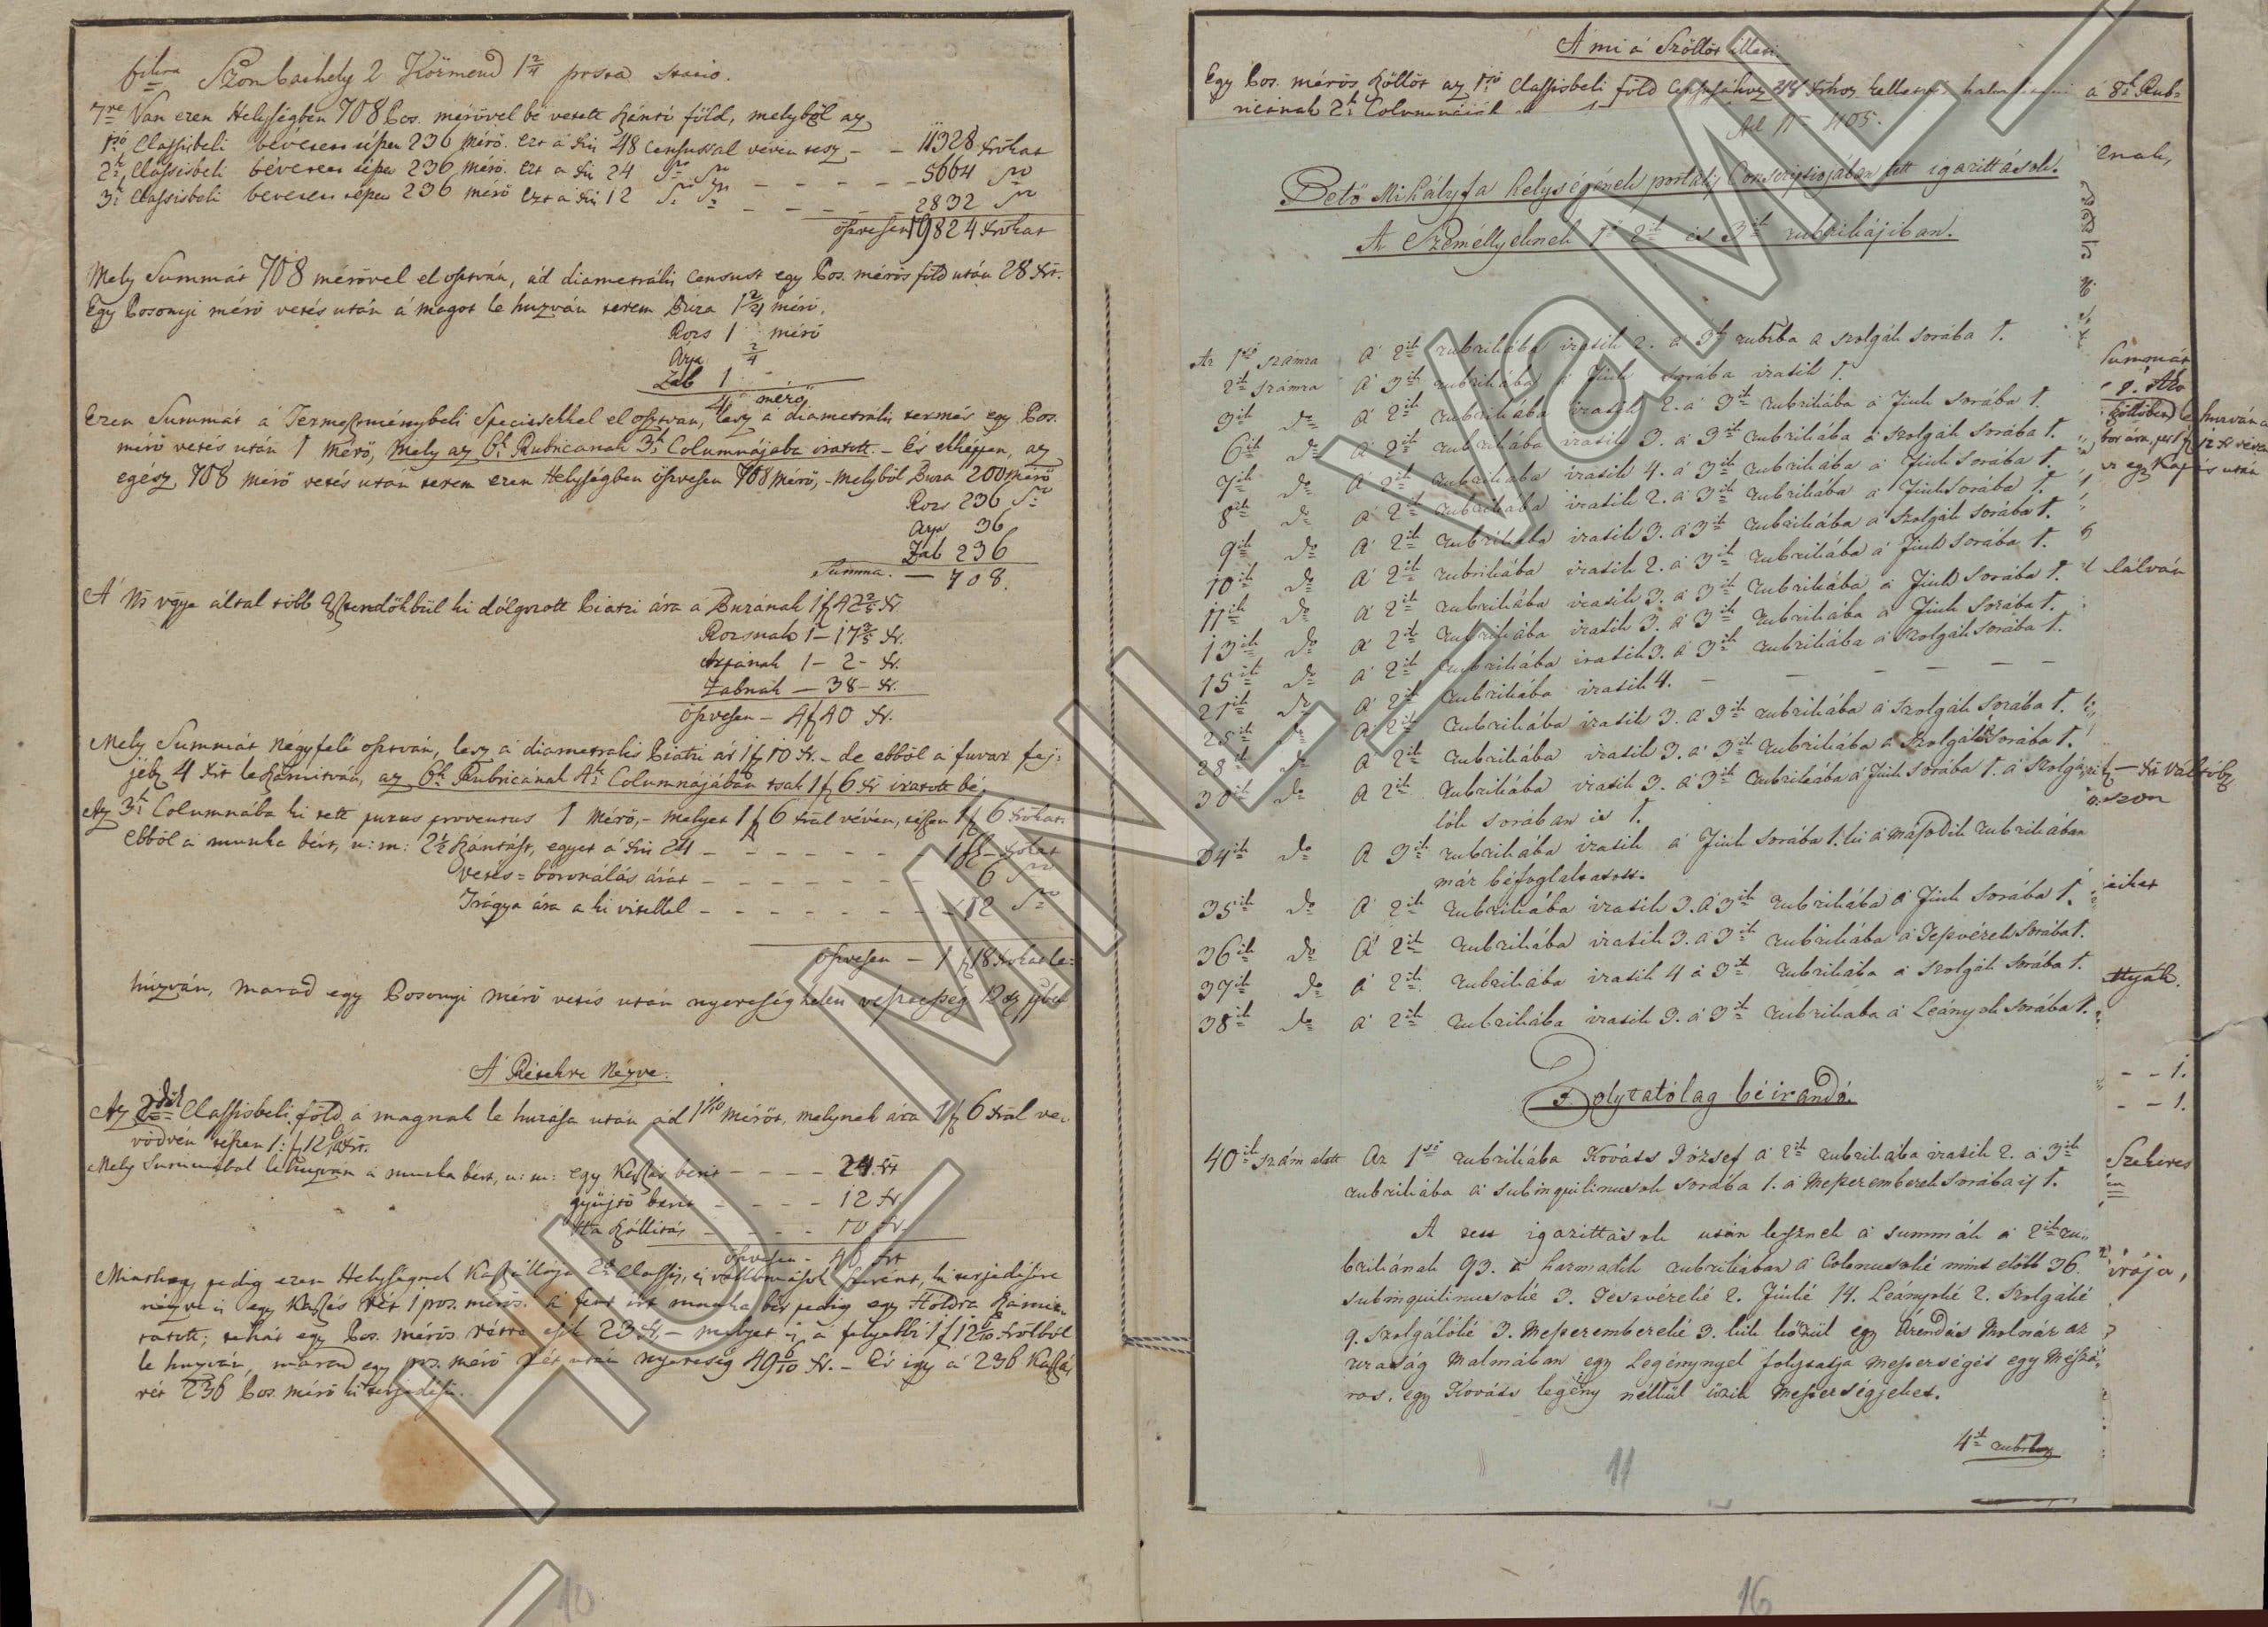 Szombathely 2 Körmend 1 2/4 posta statio.
7re Van ezen Helységben 708 Pos. mérővel bé vetett szántó föld, melyből az
1ső Classisbeli bévetett tészen 236 mérő. Ezt á xr 48 censussal vévén tesz - - 11328 xrokat
2k Classisbeli bévetett tészen 236 mérő. Ezt á xr 24 - - - - 5664
3k Classisbeli bévetett tészen 236 mérő Ezt á xr 12 - - - - 2832
öszvesen 19824 xrokat
Mely Summát 708 mérővel el osztván, ád diametralis censust egy Pos. mérős föld után 28 xr.
Egy Posonyi mérő vetés után á magot le huzván terem Búza 1 2/4 mérő.
Rozs 1 mérő
Árpa 2/4
Zab 1 -
4 mérő
Ezen Summát á Termesztménybeli Speciesekkel el osztván, lesz á diametralis termés egy Pos.
mérő vetés után 1 mérő, mely az 6k Rubricanak 3k Columnájaba iratott. - És eképpen, az
egész 708 mérő vetés után terem ezen Helységben öszvesen 708 mérő, - melyből Buza 200 mérő
Rozs 236
Árpa 36
Zab 236
Summa. - 708.
Á Ns vgye által több Esztendőkbül ki dólgozott Piatzi ára á Buzának 1 f 42 2/5 xr.
Rozsnak 1 - 17 3/5 xr.
Árpának 1 - 2 - xr.
Zabnak - 38 - xr.
öszvesen - 4 f 40 xr.
Mely Summát négyfelé osztván, lesz á diametralis Piatzi ár 1 f 10 xr. - de ebből a fuvar fej-
jébe 4 xrt le számitván, az 6k Rubricának 4k Columnájában tsak 1 f 6 xr iratott bé.
Az 3k Columnába ki tett purus proventus 1 mérő, - melyet 1 f 6 xrral vévén, tészen 1 f 6 xrokat.
Ebből á munka bért, u: m: 2 1/2 szántást, egyet á xr 24 - - - 1 f - xrokat
vetés = boronálás árát - - - 6
Trágya ára a ki vitellel - - - 12
öszvesen - 1 f 18 xrokat le-
húzván, marad egy Posonyi mérő vetés után nyereség helett veszteség 12 xr
Á Rétekre Nézve.
Az 2dik Classisbeli föld á magnak le huzása után ád 1 1/10 mérőt, melynek ára 1 f 6 xral ve-
vődvén tészen 1: f 12 6/10 xrt.
Mely Summábol lehuzván á munka bért, u: m: egy Kaszás bérit - - - - 24 xr
gyüjtő bérit - - - - 12 xr
Ha szállitás - - - - 10 xr
öszvesen - 46 xr
Minthogy pedig ezen Helységnek Kaszállója 2k Classis, á vallomások szerént, ki terjedésire
nézve is egy Kaszás rét 1 pos. mérős. á fent irt munka bér pedig egy Hóldra számit-
tatott; tehát egy Pos. mérős rétre esik 23 xr - melyet is a fellyebbi 1 f 12 6/10 xrokbol
le huzván, marad egy ps. mérő rét után nyereség 49 6/10 xr. - És igy á 236 Kaszás
rét 236 Pos. mérő ki terjedésü.
10
A mi á Szőllőt illeti.
Egy Pos. mérős szőllőt az 1ső Classisbeli föld Censussához 48 xrhoz kelletett á 8k Rub-
ricának 2k Columnáján
Ad N 1105.
Pető Mihályfa helységének portalis Conscriptiojában tett igazittások.
A Személlyeknek 1ő 2ik és 3ik rubrikájiban.
Az 1ső számra A' 2ik rubrikába iratik 2. a 3ik rubrba a szolgák sorába 1.
2ik számra A' 3ik rubrikába a Fiuk sorába iratik 1.
3ik do A' 2ik rubrikába iratik 2. a 3ik rubrikába a Fiuk sorába 1.
6ik do A' 2ik rubrikába iratik 3. a 3ik rubrikába a szolgák sorába 1.
7ik do A' 2ik rubrikába iratik 4. a 3ik rubrikába a Fiuk sorába 1.
8ik do A' 2ik rubrikába iratik 2. a 3ik rubrikába a Fiuk sorába 1.
9ik do A' 2ik rubrikába iratik 3. a 3ik rubrikába a szolgák sorába 1.
10ik do A' 2ik rubrikába iratik 2. a 3ik rubrikába a Fiuk sorába 1.
11ik do A' 2ik rubrikába iratik 3. a 3ik rubrikába a Fiuk sorába 1.
13ik do A' 2ik rubrikába iratik 3. a 3ik rubrikába a Fiuk sorába 1.
15ik do A' 2ik rubrikába iratik 3. a 3ik rubrikába a szolgák sorába 1.
21ik do A' 2ik rubrikába iratik 4. - - - - -
25ik do A' 2ik rubrikába iratik 3. a 3ik rubrikába a szolgák sorába 1.
28ik do A' 2ik rubrikába iratik 3. a 3ik rubrikába a szolgálók sorába 1.
30ik do A' 2ik rubrikába iratik 3. a 3ik rubrikába a Fiuk sorába 1. a szolgá-
lók sorában is 1.
34ik do A' 3ik rubrikába iratik a Fiuk sorába 1. ki a második rubrikában
már béfoglaltatott.
35ik do A' 2ik rubrikába iratik 3. a 3ik rubrikába a Fiuk sorába 1.
36ik do A' 2ik rubrikába iratik 3. a 3ik rubrikába a Testvérek sorába 1.
37ik do A' 2ik rubrikába iratik 4 a 3ik rubrikába a szolgák sorába 1.
38ik do A' 2ik rubrikába iratik 3. a 3ik rubrikába a Leányok sorába 1.
Folytatólag béirandó.
40ik szám alatt Az 1ső rubrikába Kováts József a 2ik rubrikába iratik 2. a 3ik
rubrikába a subinquilinusok sorába 1. a Mesteremberek sorába is 1.
A tett igazittások után lesznek a summák a 2ik ru-
brikának 93. a harmadik rubrikában a Colonusoké mint előtt 36.
subinquilinusoké 3. Testvéreké 2. Fiúké 14. Leányoké 2. Szolgáké
9. szolgálóké 3. Mesterembereké 3. kik közül egy Árendás Molnár az
uraság Malmában egy Legénynyel folytatja mesterségét egy Mészá-
ros, egy Kováts legény nélkül üzik Mesterségjeket.
4ik rubrik
11
16
enak,
Summát
lálván
Szekeres
HU MNL VaML